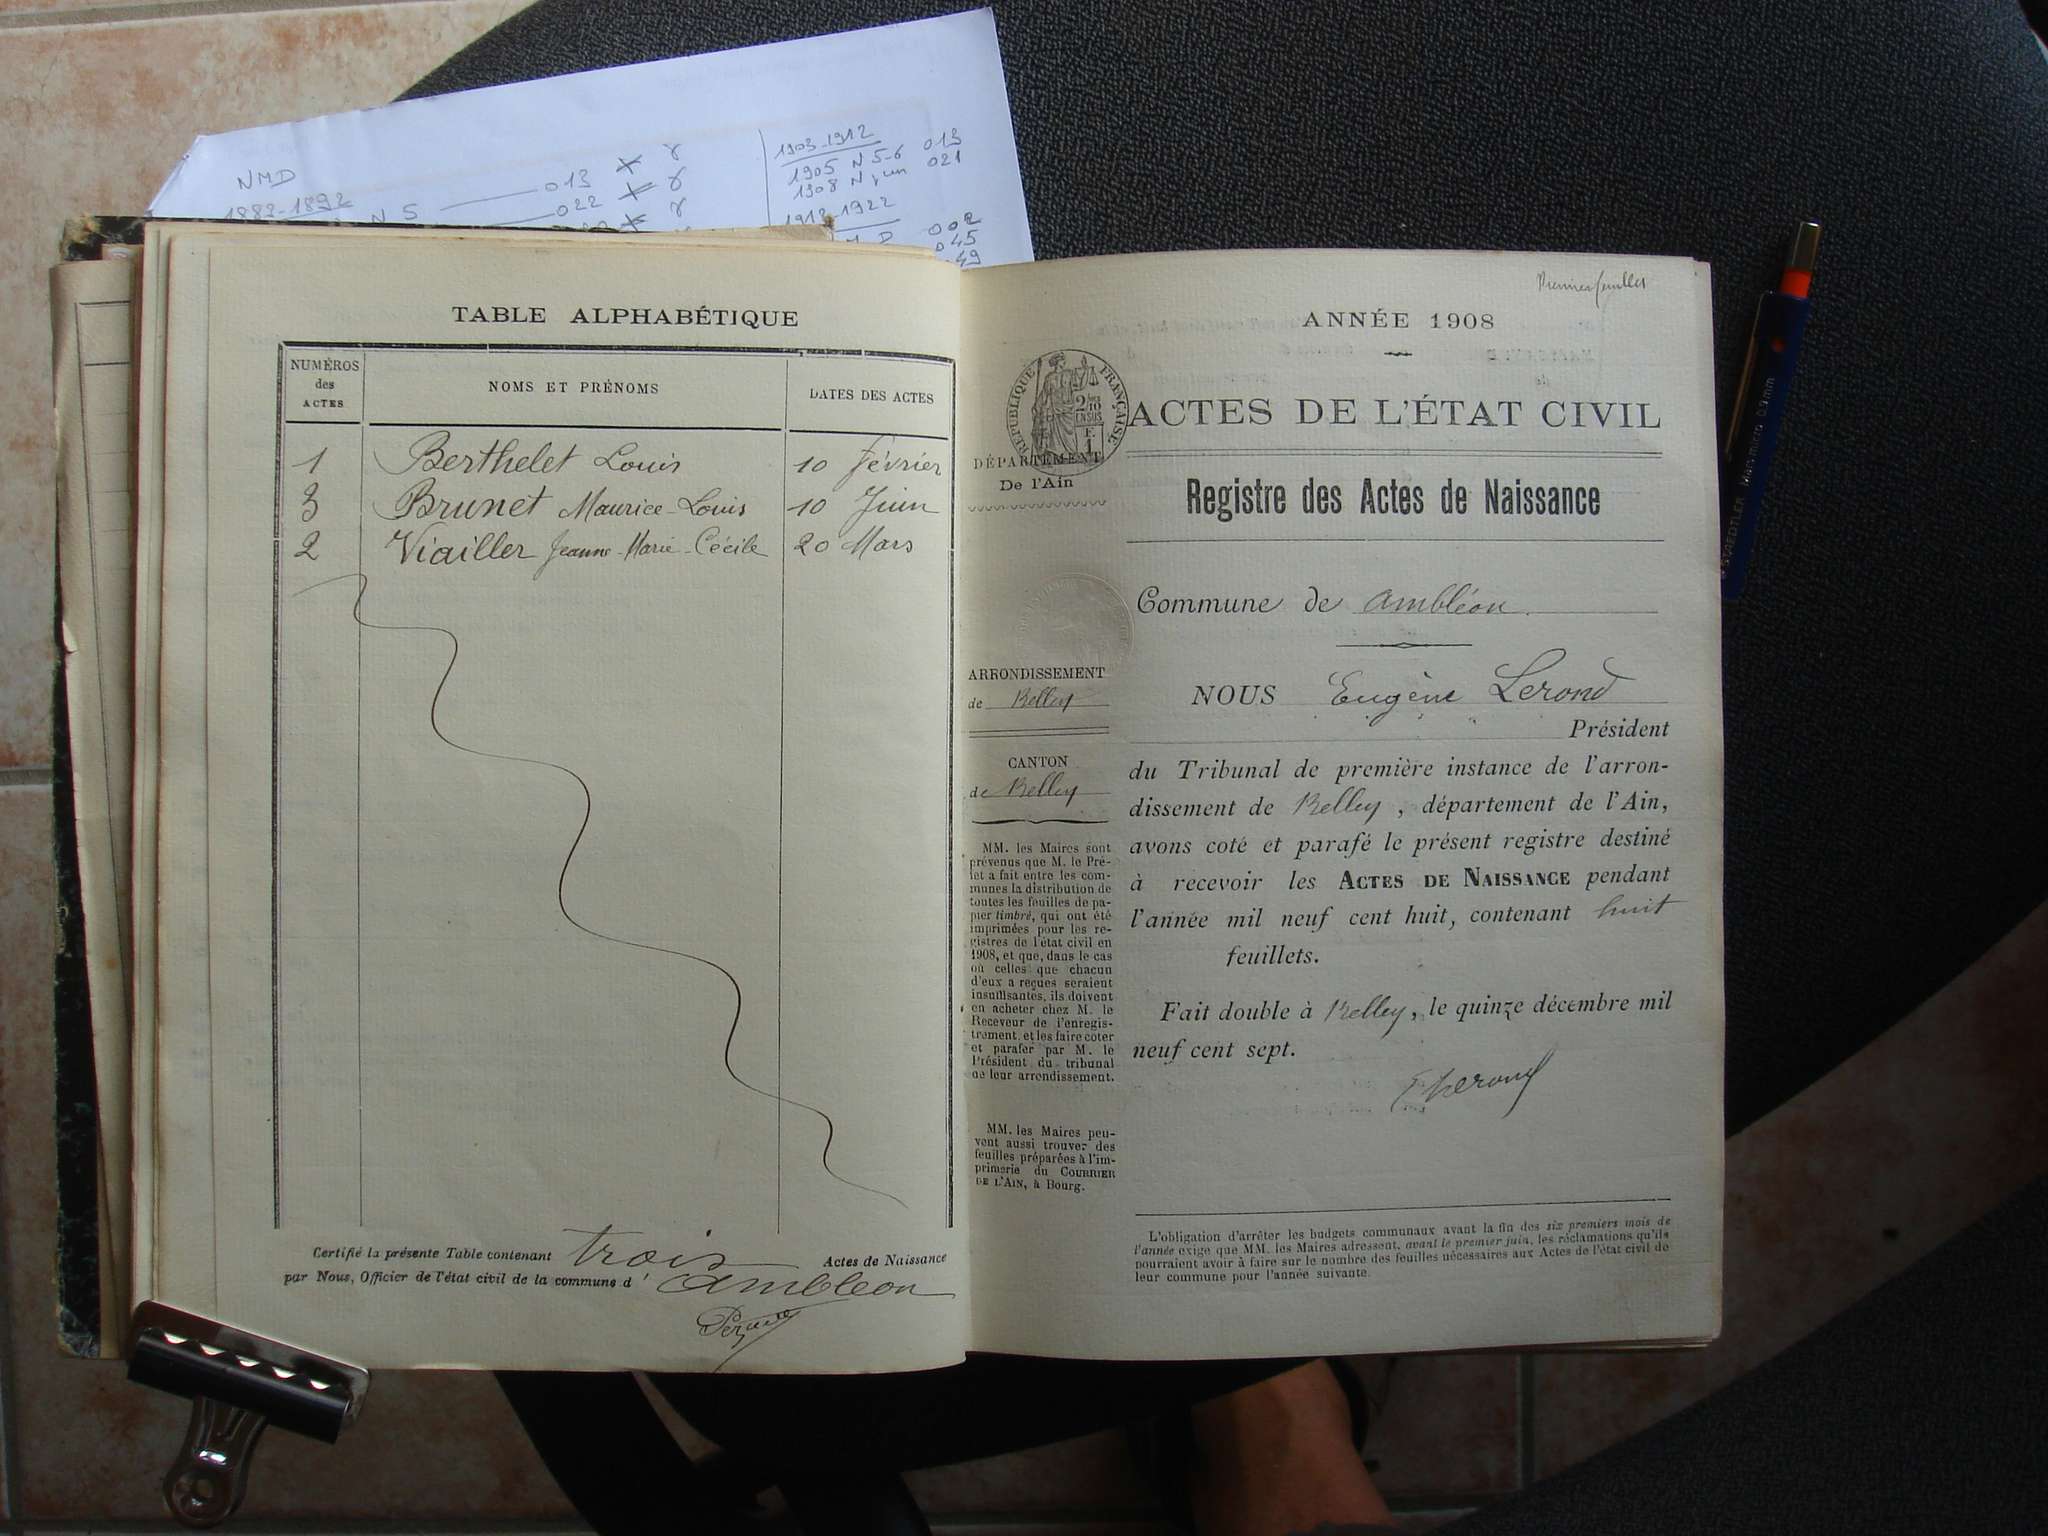 NMD
1883-1892
N 5 013
022
1903-1912
1905 N 5-6 013
1908 N 021
1912-1922
N D 002
045
49
TABLE ALPHABÉTIQUE
NUMÉROS des ACTES
NOMS ET PRÉNOMS
DATES DES ACTES
1 Berthelet Louis 10 Février
3 Brunet Maurice-Louis 10 Juin
2 Viailler Jeanne-Marie-Cécile 20 Mars
Certifié la présente Table contenant trois Actes de Naissance
par Nous, Officier de l'état civil de la commune d' Ambléon
Premier feuillet
ANNÉE 1908
RÉPUBLIQUE FRANÇAISE
2/10 EN SUS
F. 1
ACTES DE L'ÉTAT CIVIL
DÉPARTEMENT
De l'Ain
Registre des Actes de Naissance
Commune de Ambléon
ARRONDISSEMENT
de Belley
CANTON
de Belley
MM. les Maires sont
prévenus que M. le Pré-
fet a fait entre les com-
munes la distribution de
toutes les feuilles de pa-
pier timbré, qui ont été
imprimées pour les re-
gistres de l'état civil en
1908, et que, dans le cas
où celles que chacun
d'eux a reçues seraient
insuffisantes, ils doivent
en acheter chez M. le
Receveur de l'enregis-
trement, et les faire coter
et parafer par M. le
Président du tribunal
de leur arrondissement.
MM. les Maires peu-
vent aussi trouver des
feuilles préparées à l'im-
primerie du COURRIER
DE L'AIN, à Bourg.
NOUS Eugène Lerond
Président
du Tribunal de première instance de l'arron-
dissement de Belley, département de l'Ain,
avons coté et parafé le présent registre destiné
à recevoir les ACTES DE NAISSANCE pendant
l'année mil neuf cent huit, contenant huit
feuillets.
Fait double à Belley, le quinze décembre mil
neuf cent sept.
E Lerond
L'obligation d'arrêter les budgets communaux avant la fin des six premiers mois de
l'année exige que MM. les Maires adressent, avant le premier juin, les réclamations qu'ils
pourraient avoir à faire sur le nombre des feuilles nécessaires aux Actes de l'état civil de
leur commune pour l'année suivante.
STAEDTLER Mars micro 0,9 mm